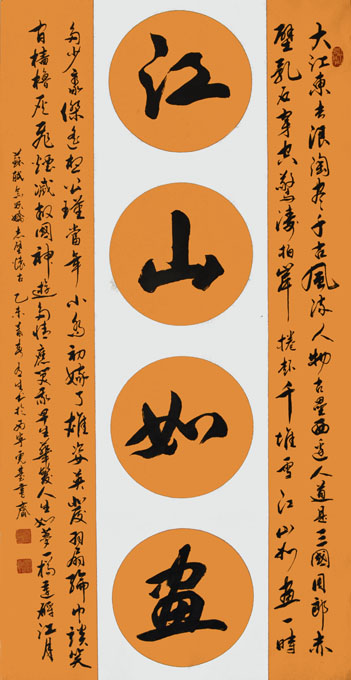 江山如畫
大江東去浪淘盡千古風流人物古壘西邊人道是三國周郎赤
壁亂石穿空驚濤拍岸捲起千堆雪江山如畫一時
多少豪傑遙想公瑾當年小喬初嫁了雄姿英發羽扇綸巾談笑
間檣櫓灰飛煙滅故國神遊多情應笑我早生華髮人生如夢一樽還酹江月
蘇軾念奴嬌赤壁懷古乙未春書於西寧書齋